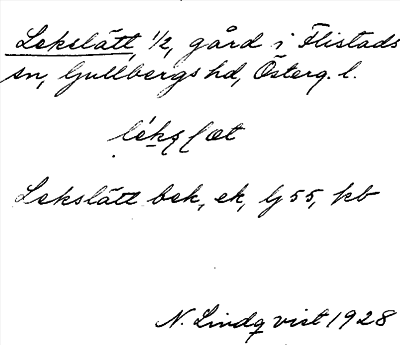 Lekslätt, 1/2, gård i Flistads
sn, Gullbergs hd, Österg. l.
Lekslätt bek, ek, Gj 55, kb
N. Lindqvist 1928